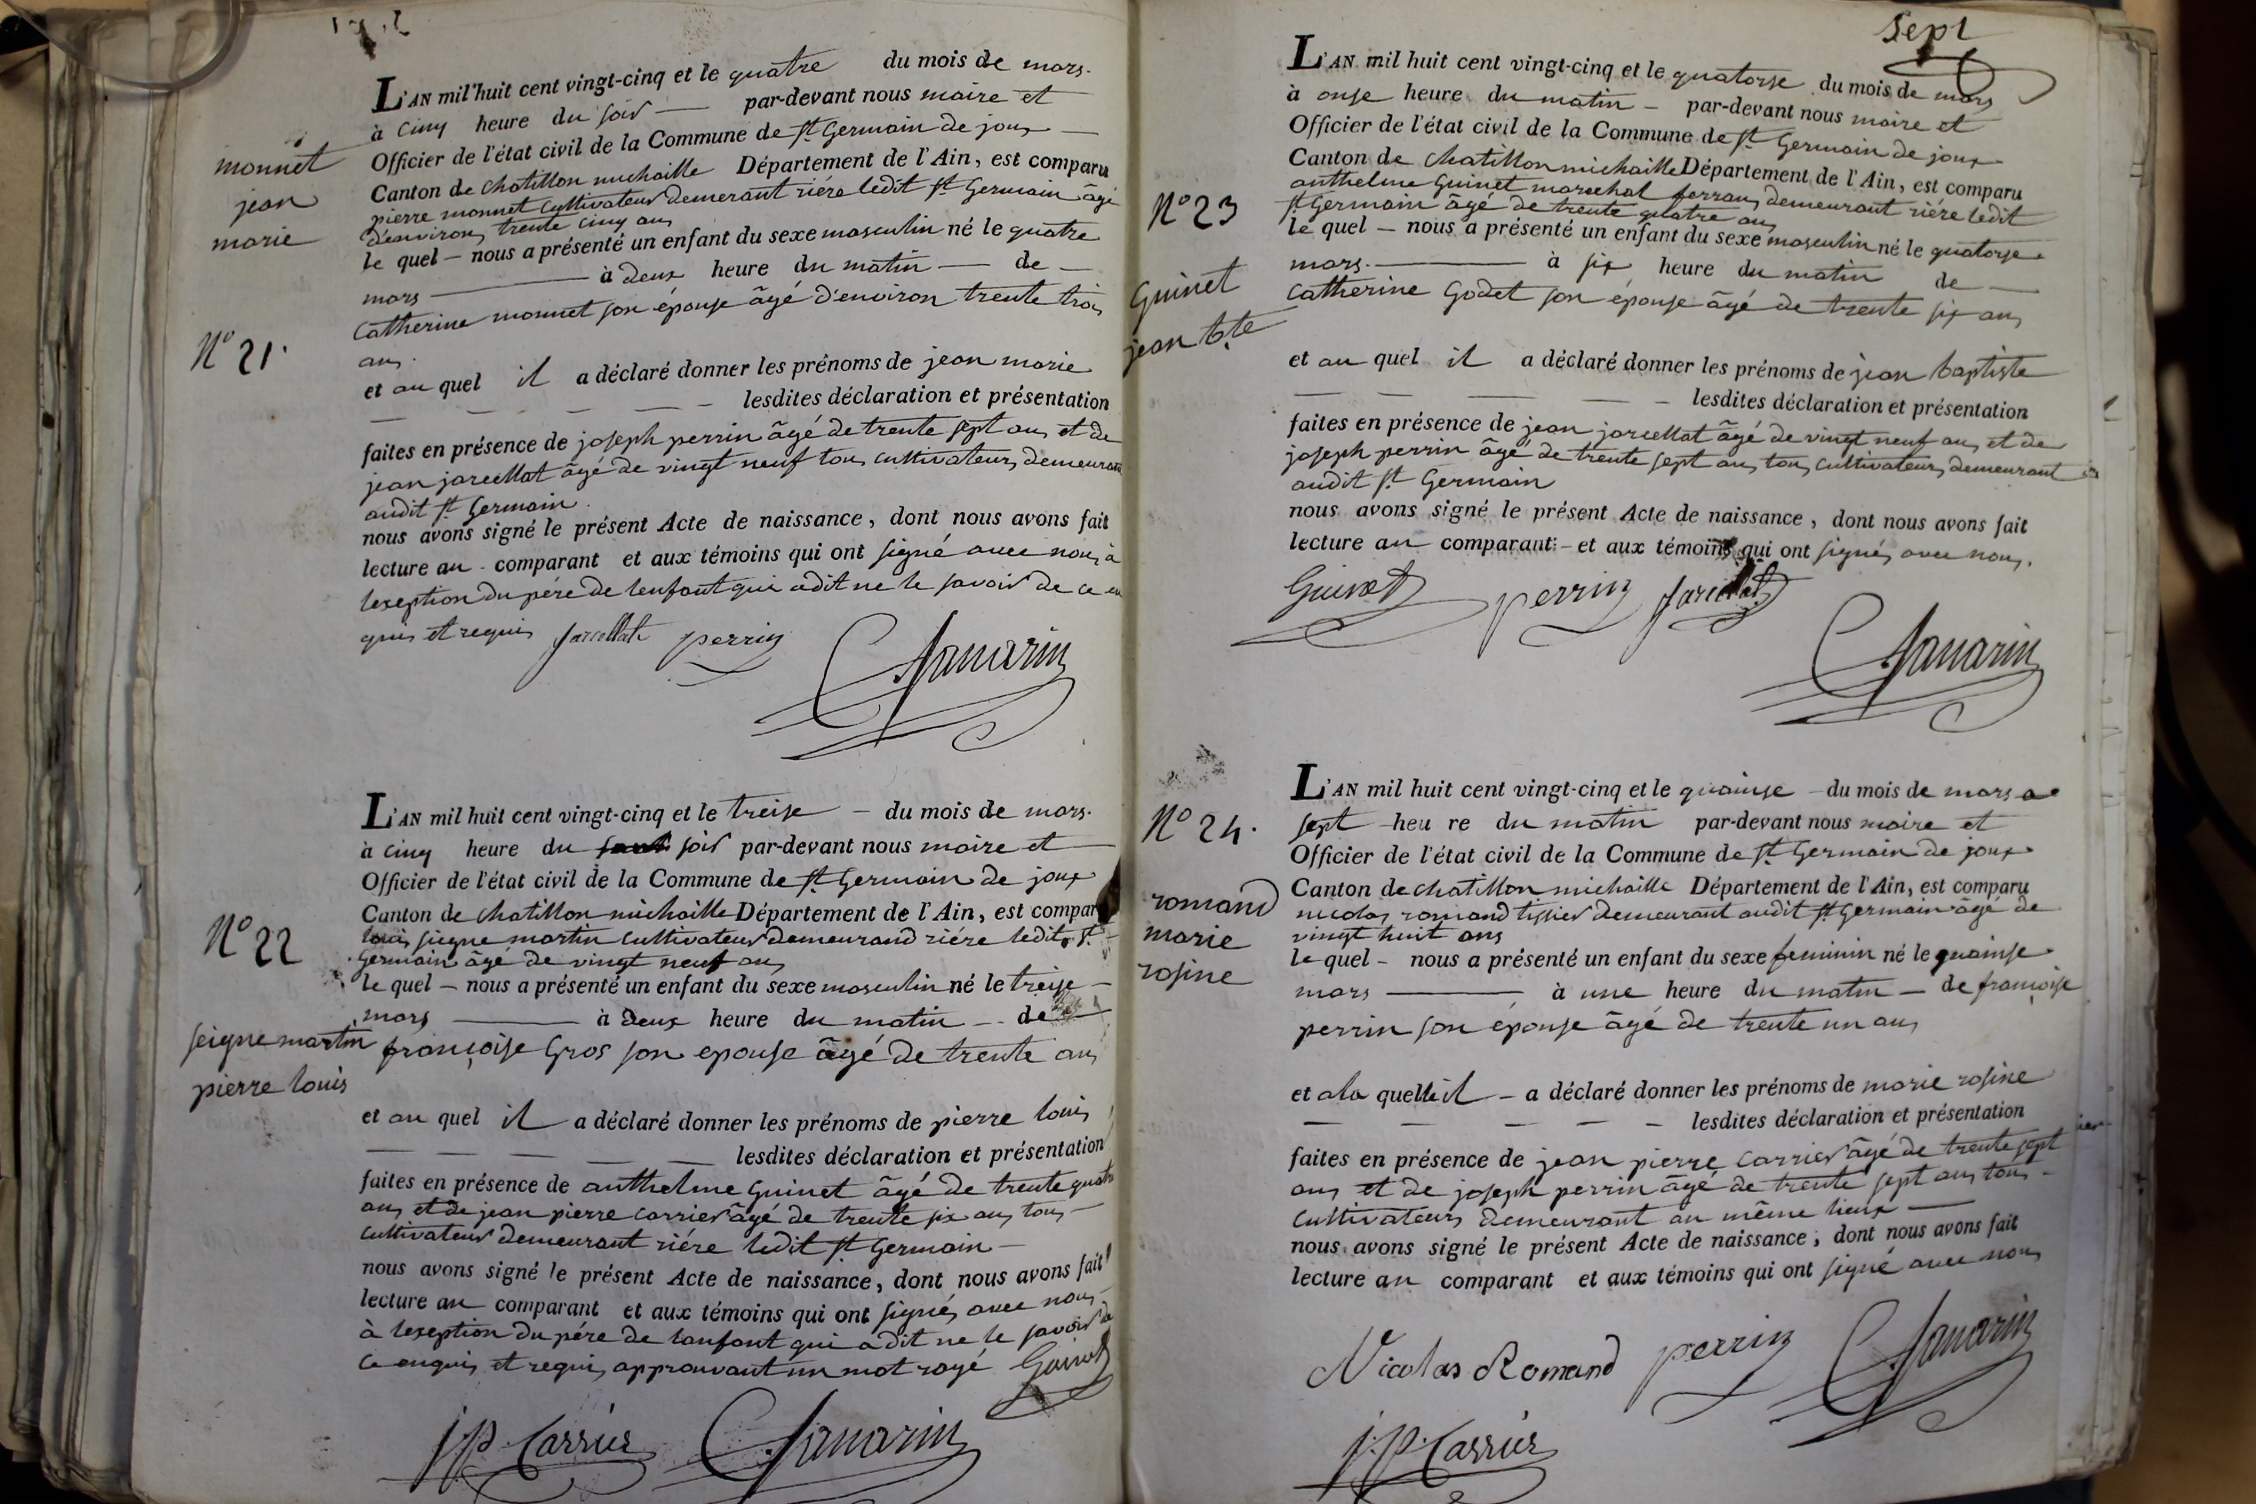 monnet
jean
marie
N° 21.
L'AN mil huit cent vingt-cinq et le quatre du mois de mars.
à cinq heure du soir — par-devant nous maire et
Officier de l'état civil de la Commune de St Germain de joux —
Canton de chatillon michaille Département de l'Ain, est comparu
pierre monnet cultivateur demeurant riére ledit St Germain âgé
d'environ trente cinq ans
le quel — nous a présenté un enfant du sexe masculin né le quatre
mars — à deux heure du matin — de —
catherine monnet son épouse âgé d'environ trente trois
ans.
et au quel il a déclaré donner les prénoms de jean marie
— — — — — lesdites déclaration et présentation
faites en présence de joseph perrin âgé de trente sept ans et de
jean jarcellat âgé de vingt neuf tous cultivateurs demeurant
audit St Germain.
nous avons signé le présent Acte de naissance, dont nous avons fait
lecture au comparant et aux témoins qui ont signé avec nous à
lexeption du pére de lenfant qui a dit ne le savoir de ce en
quis et requis Jarcellat perrin
Savarin
N° 22
seigne martin
pierre louis
L'AN mil huit cent vingt-cinq et le treise — du mois de mars.
à cinq heure du soir par-devant nous maire et —
Officier de l'état civil de la Commune de St Germain de joux
Canton de chatillon michaille Département de l'Ain, est compar
louis seigne martin cultivateur demeurand riére ledit St
Germain âgé de vingt neuf ans
le quel — nous a présenté un enfant du sexe masculin né le treise —
mars — à deux heure du matin — de —
françoise Gros son epouse âgé de trente ans
et au quel il a déclaré donner les prénoms de pierre louis
— — — — — lesdites déclaration et présentation
faites en présence de anthelme Guinet âgé de trente quatre
ans et de jean pierre carrier âgé de trente six ans tous —
cultivateur demeurant riére ledit St Germain —
nous avons signé le présent Acte de naissance, dont nous avons fait
lecture au comparant et aux témoins qui ont signés avec nous —
à lexeption du pére de lanfant qui a dit ne le savoir de
ce enquis et requis approuvant un mot rayé Guinet
j. P. Carrier Savarin
Sept
N° 23
Guinet
jean bte
L'AN mil huit cent vingt-cinq et le quatorse du mois de mars
à onse heure du matin — par-devant nous maire et
Officier de l'état civil de la Commune de St Germain de joux
Canton de chatillon michaille Département de l'Ain, est comparu
anthelme Guinet marechal ferran demeurant riére ledit
St Germain âgé de trente quatre ans
le quel — nous a présenté un enfant du sexe masculin né le quatorse
mars. — à six heure du matin de —
catherine Godet son épouse âgé de trente six ans
et au quel il a déclaré donner les prénoms de jean baptiste
— — — — — lesdites déclaration et présentation
faites en présence de jean jarcellat âgé de vingt neuf ans et de
joseph perrin âgé de trente sept ans tous cultivateurs demeurant
audit St Germain
nous avons signé le présent Acte de naissance, dont nous avons fait
lecture au comparant — et aux témoins qui ont signés avec nous.
Guinet perrin Jarcellat
Savarin
N° 24.
romand
marie
rosine
L'AN mil huit cent vingt-cinq et le quainse — du mois de mars a
sept heure du matin par-devant nous maire et
Officier de l'état civil de la Commune de St Germain de joux
Canton de chatillon michaille Département de l'Ain, est comparu
nicolas romand tissier demeurant audit St Germain âgé de
vingt huit ans
le quel — nous a présenté un enfant du sexe feminin né le quainse
mars — à une heure du matin — de françoise
perrin son épouse âgé de trente un ans
et a la quelle il — a déclaré donner les prénoms de marie rosine
— — — — — lesdites déclaration et présentation
faites en présence de jean pierre carrier âgé de trente sept
ans et de joseph perrin âgé de trente sept ans tous —
cultivateurs demeurant au même lieux —
nous avons signé le présent Acte de naissance, dont nous avons fait
lecture au comparant et aux témoins qui ont signé avec nous
Nicolas Romand perrin Savarin
j. P. Carrier